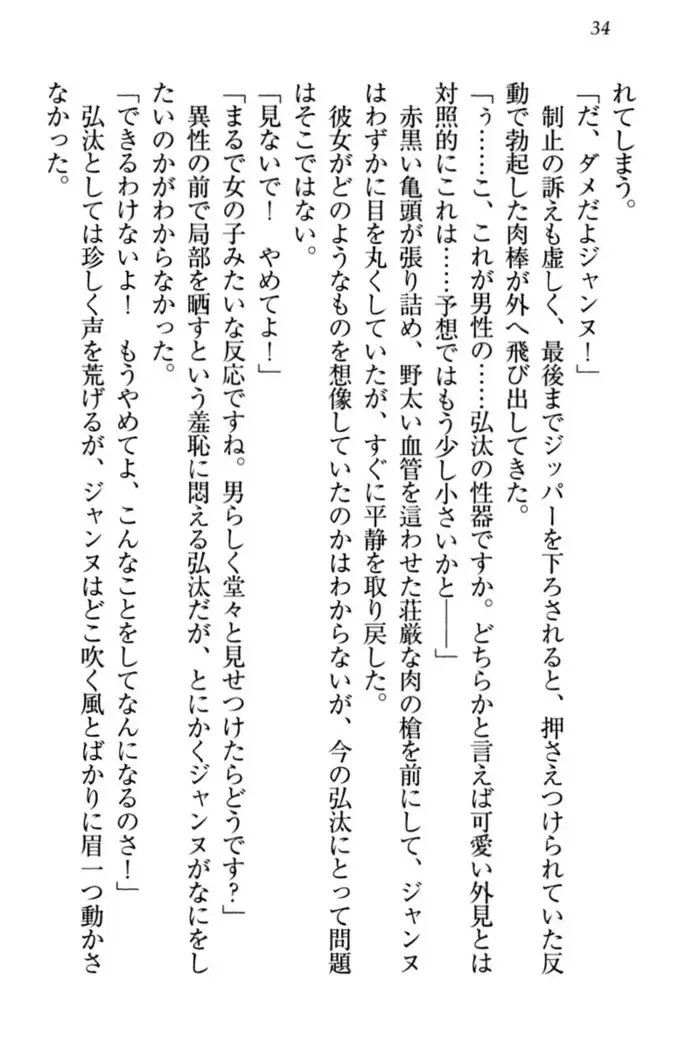 34
れてしまう。
「だ、ダメだよジャンヌ！」
制止の訴えも虚しく、最後までジッパーを下ろされると、押さえつけられていた反
動で勃起した肉棒が外へ飛び出してきた。
「ぅ……こ、これが男性の……弘汰の性器ですか。どちらかと言えば可愛い外見とは
対照的にこれは……予想ではもう少し小さいかと――」
赤黒い亀頭が張り詰め、野太い血管を這わせた荘厳な肉の槍を前にして、ジャンヌ
はわずかに目を丸くしていたが、すぐに平静を取り戻した。
彼女がどのようなものを想像していたのかはわからないが、今の弘汰にとって問題
はそこではない。
「見ないで！　やめてよ！」
「まるで女の子みたいな反応ですね。男らしく堂々と見せつけたらどうです？」
異性の前で局部を晒すという羞恥に悶える弘汰だが、とにかくジャンヌがなにをし
たいのかがわからなかった。
「できるわけないよ！　もうやめてよ、こんなことをしてなんになるのさ！」
弘汰としては珍しく声を荒げるが、ジャンヌはどこ吹く風とばかりに眉一つ動かさ
なかった。